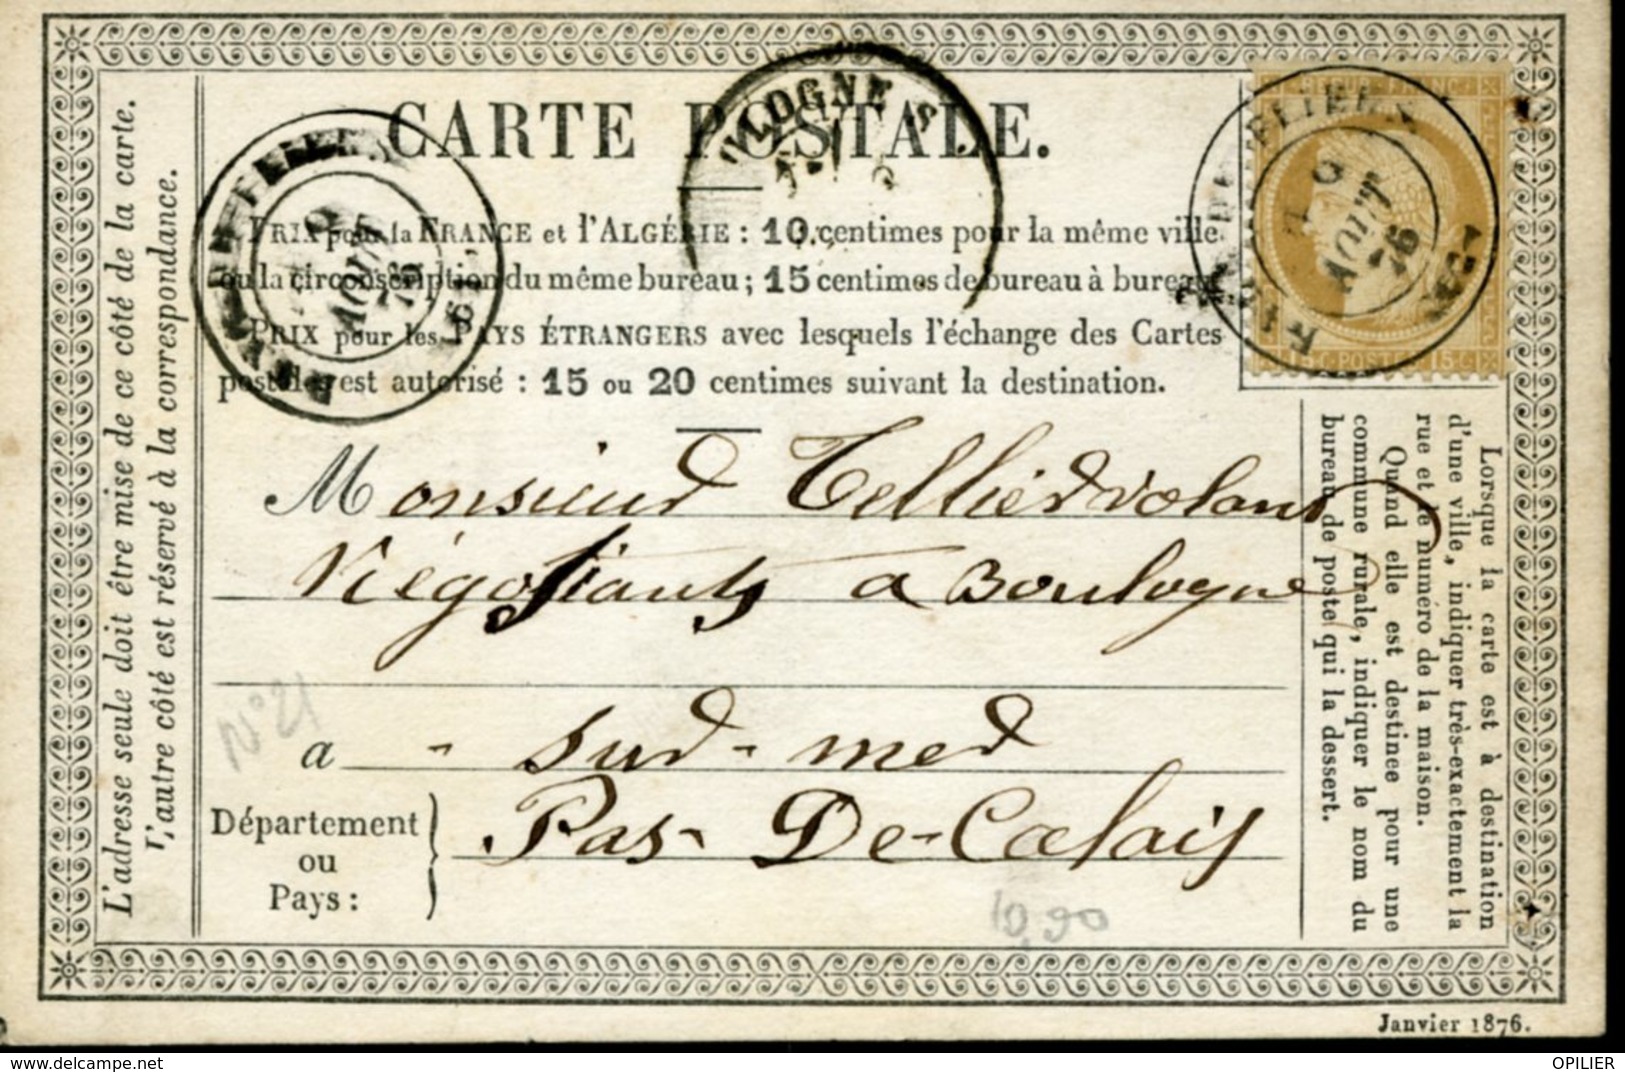 CARTE POSTALE.
PRIX pour la FRANCE et l'ALGÉRIE : 10 centimes pour la même ville
ou la circonscription du même bureau ; 15 centimes de bureau à bureau
PRIX pour les PAYS ÉTRANGERS avec lesquels l'échange des Cartes
postales est autorisé : 15 ou 20 centimes suivant la destination.
Monsieur Tellier
Négotiants a Boulogne
a - sur-mer
Département
ou
Pays :
Pas-De-Calais
L'adresse seule doit être mise de ce côté de la carte.
L'autre côté est réservé à la correspondance.
Lorsque la carte est à destination
d'une ville, indiquer très-exactement la
rue et le numéro de la maison.
Quand elle est destinée pour une
commune rurale, indiquer le nom du
bureau de poste qui la dessert.
N°21
10,90
OLOGNE S
9
AOUT
76
9
AOUT
76
REPUB. FRANC.
15 C. POSTES 15 C.
Janvier 1876.
www.delcampe.net
OPILIER